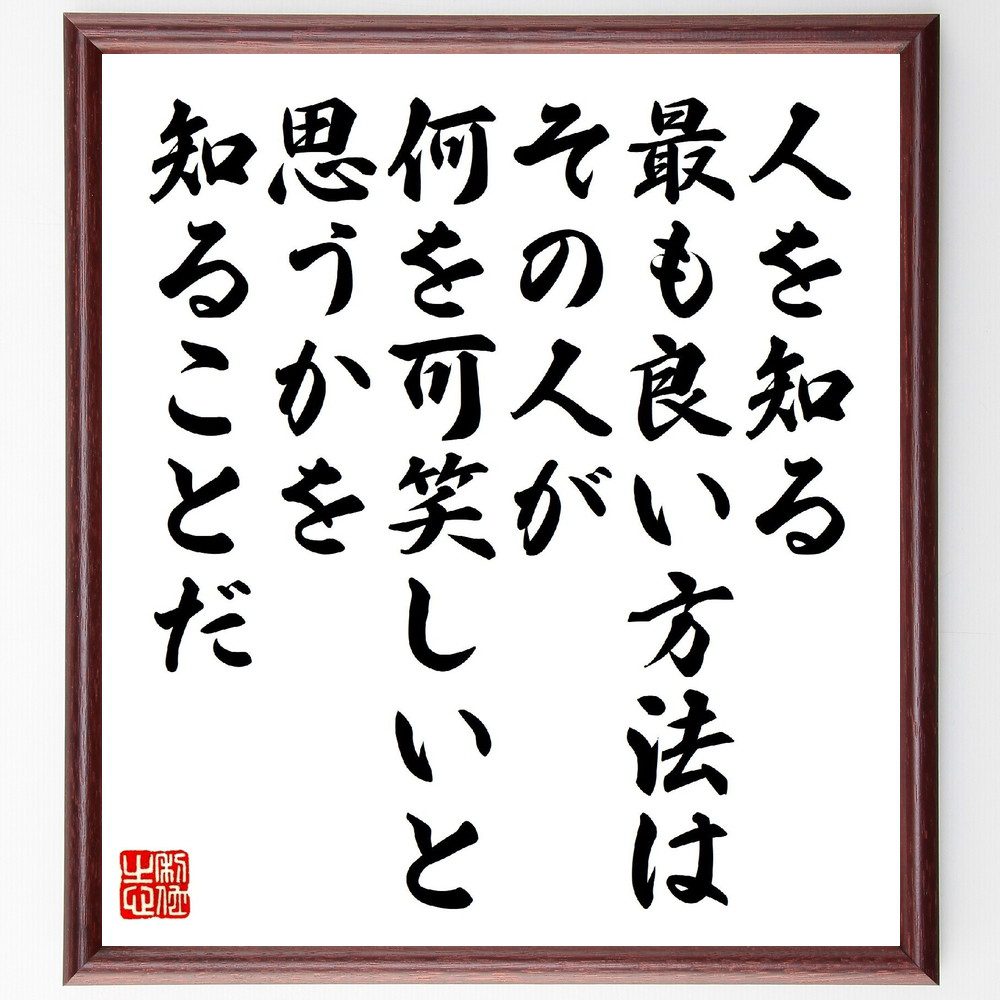 人を知る
最も良い方法は
その人が
何を可笑しいと
思うかを
知ることだ